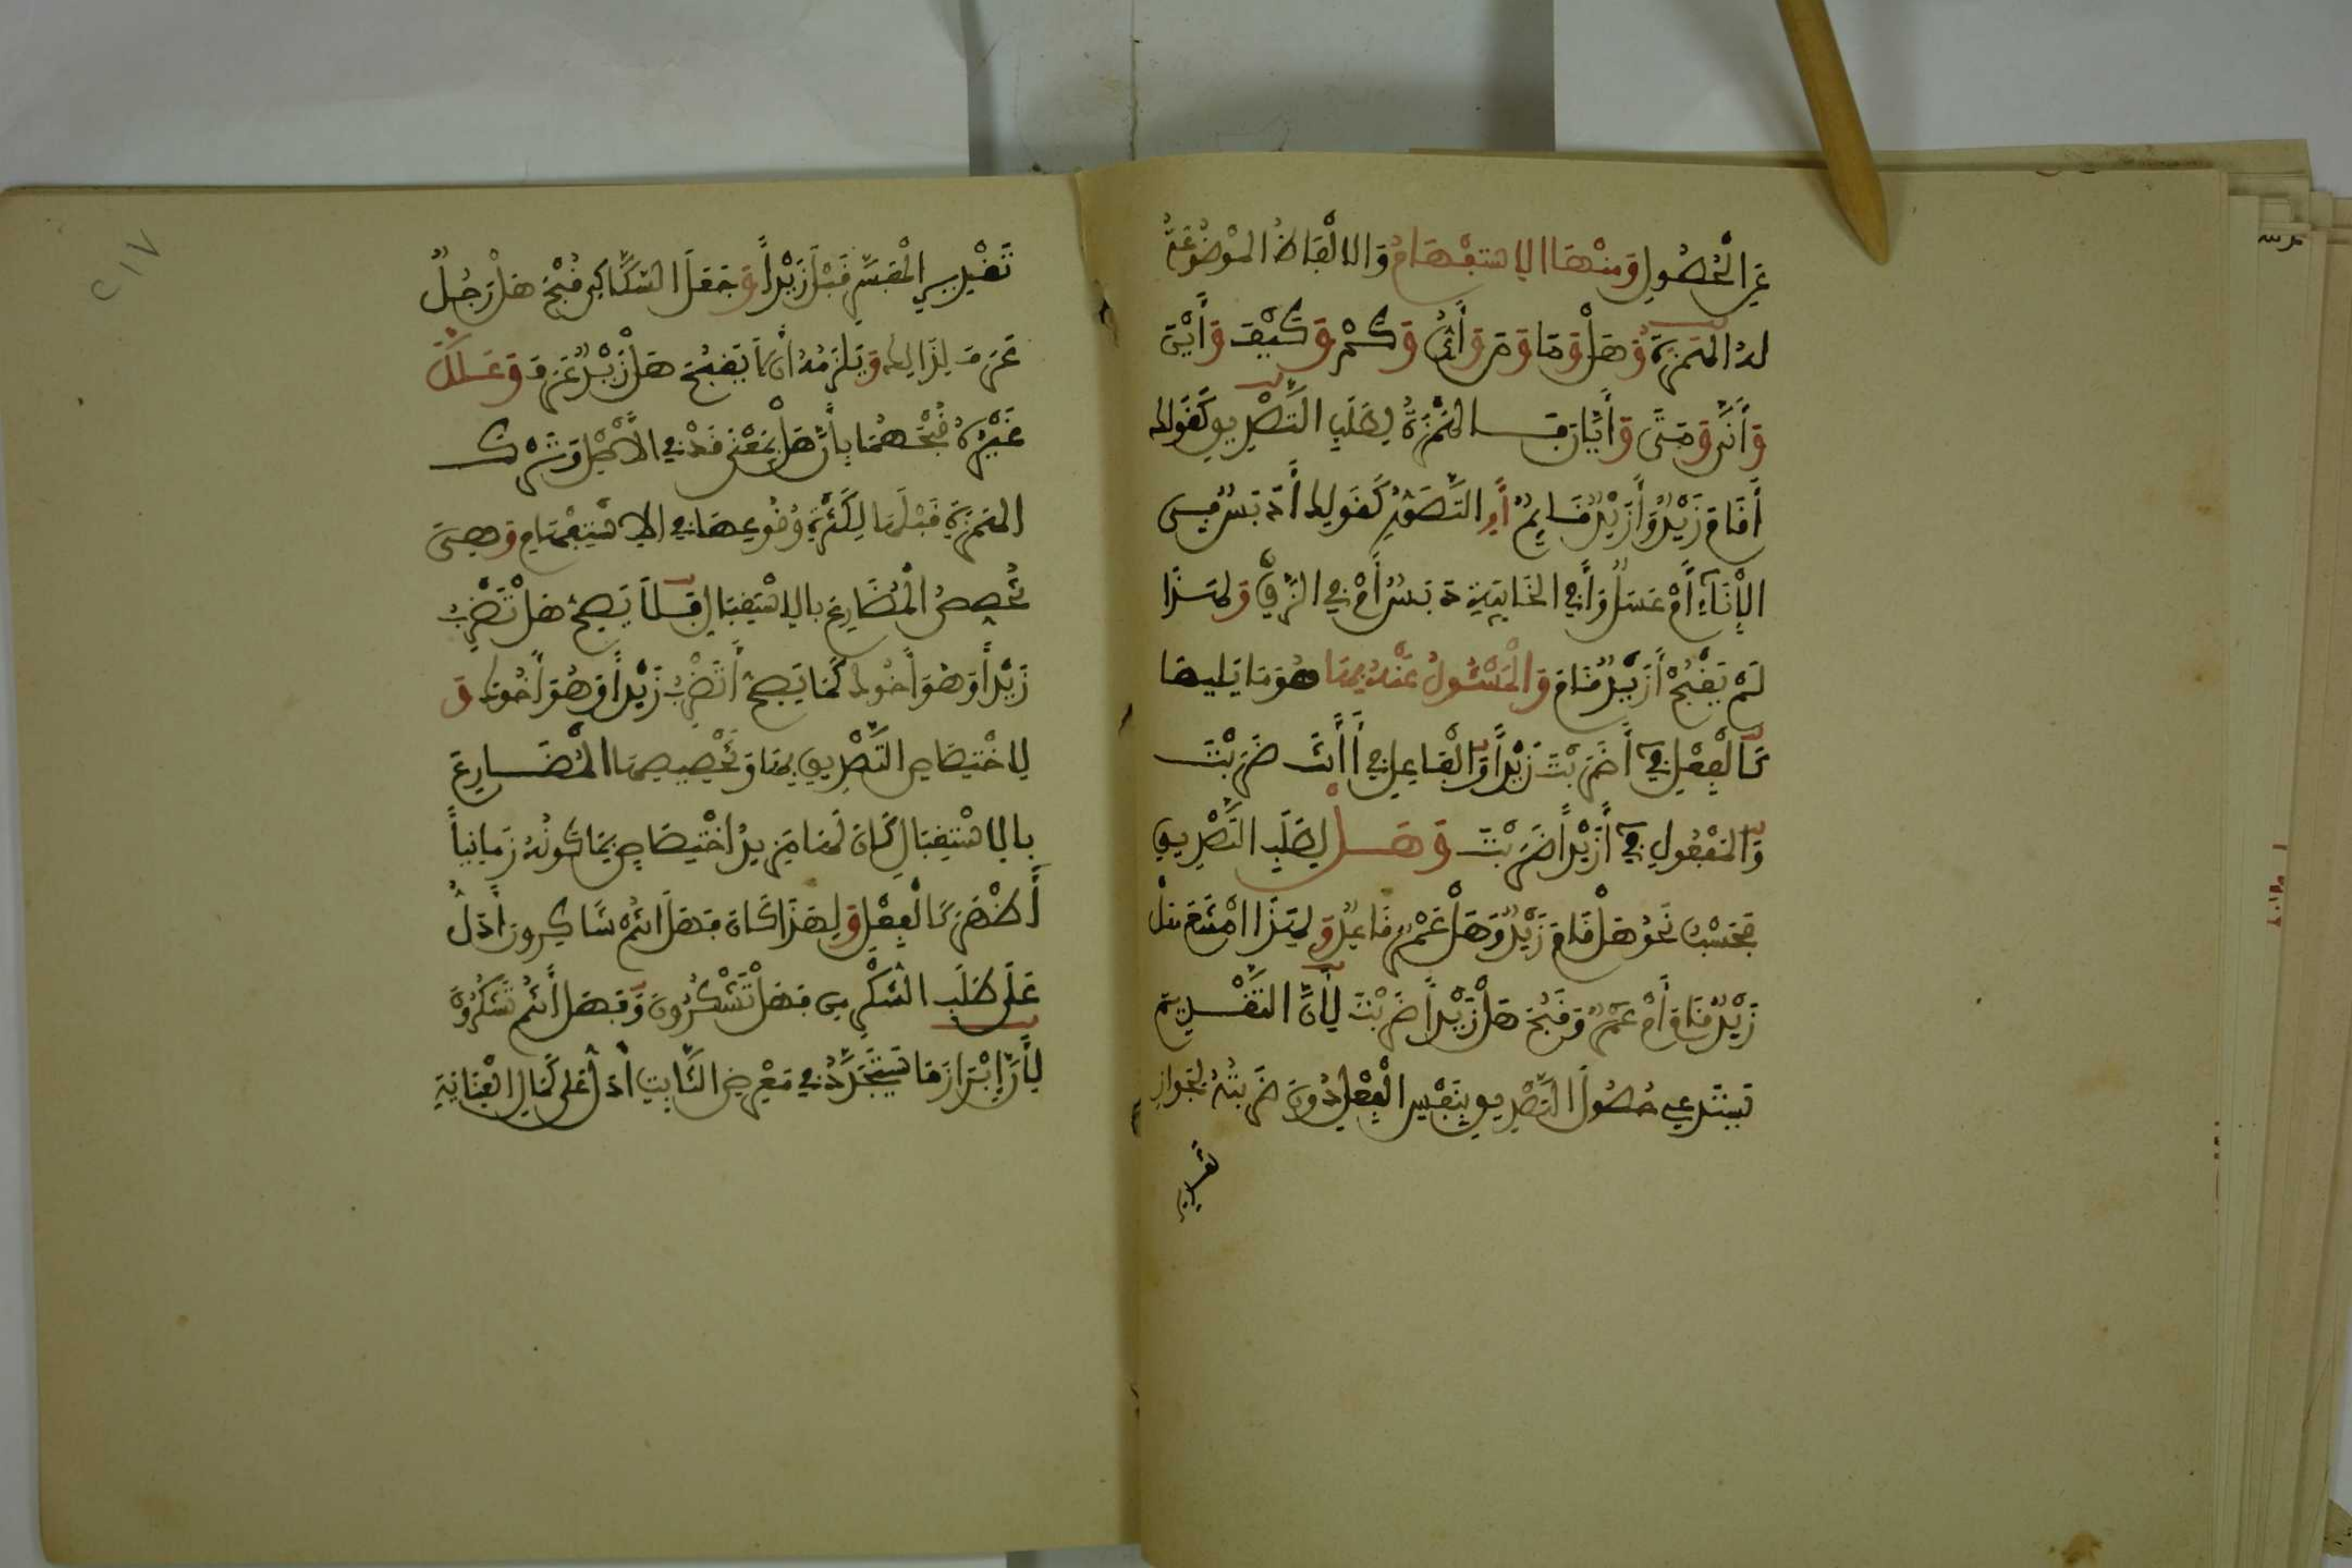 عَنِ الْحُصُولِ وَمِنْهَا الِاسْتِفْهَامُ وَالالْفَاظُ الْمَوْضُوعَةُ
لَهُ الْهَمْزَةُ وَهَلْ وَمَا وَمَنْ وَأَيُّ وَكَمْ وَكَيْفَ وَأَيْنَ
وَأَنَّى وَمَتَى وَأَيَّانَ فَالْهَمْزَةُ لِطَلَبِ التَّصْدِيقِ كَقَوْلِكَ
أَقَامَ زَيْدٌ وَأَزَيْدٌ قَائِمٌ أَوِ التَّصَوُّرِ كَقَوْلِكَ أَدِبْسٌ فِي
الْإِنَاءِ أَمْ عَسَلٌ وَأَفِي الْخَابِيَةِ دِبْسُكَ أَمْ فِي الزِّقِّ وَلِهَذَا
لَمْ يَقْبُحْ أَزَيْدٌ قَامَ وَالْمَسْئُولُ عَنْهُ بِهَا هُوَ مَا يَلِيهَا
كَالْفِعْلِ فِي أَضَرَبْتَ زَيْداً وَالْفَاعِلِ فِي أَأَنْتَ ضَرَبْتَ
وَالْمَفْعُولِ فِي أَزَيْداً ضَرَبْتَ وَهَلْ لِطَلَبِ التَّصْدِيقِ
فَحَسْبُ نَحْوُ هَلْ قَامَ زَيْدٌ وَهَلْ عَمْرٌو قَاعِدٌ وَلِهَذَا امْتَنَعَ هَلْ
زَيْدٌ قَامَ أَمْ عَمْرٌو وَقَبُحَ هَلْ زَيْداً ضَرَبْتَ لِأَنَّ التَّقْدِيمَ
يَسْتَدْعِي حُصُولَ التَّصْدِيقِ بِنَفْسِ الْفِعْلِ دُونَ ضَرَبْتَهُ لِجَوَازِ
تَقْدِيرِ
٢١٧
تَقْدِيرِ الْمُفَسِّرِ قَبْلَ زَيْداً وَجَعَلَ السَّكَّاكِي قُبْحَ هَلْ رَجُلٌ
عَرَفَ لِذَالِكَ وَيَلْزَمُهُ أَن لَّا يَقْبُحَ هَلْ زَيْدٌ عَرَفَ وَعَلَّلَ
غَيْرُهُ قُبْحَهُمَا بِأَنَّ هَلْ بِمَعْنَى قَدْ فِي الْأَصْلِ وَتَرْكِ
الْهَمْزَةِ قَبْلَهَا لِكَثْرَةِ وُقُوعِهَا فِي الِاسْتِفْهَامِ وَهِيَ
تُخَصِّصُ الْمُضَارِعَ بِالِاسْتِقْبَالِ فَلَا يَصِحُّ هَلْ تَضْرِبُ
زَيْداً وَهُوَ أَخُوكَ كَمَا يَصِحُّ أَتَضْرِبُ زَيْداً وَهُوَ أَخُوكَ وَ
لِاخْتِصَاصِ التَّصْدِيقِ بِهَا وَتَخْصِيصِهَا الْمُضَارِعَ
بِالِاسْتِقْبَالِ كَانَ لَهَا مَزِيدُ اخْتِصَاصٍ بِمَا كَوْنُهُ زَمَانِيّاً
أَظْهَرُ كَالْفِعْلِ وَلِهَذَا كَانَ فَهَلْ أَنْتُمْ شَاكِرُونَ أَدَلُّ
عَلَى طَلَبِ الشُّكْرِ مِن فَهَلْ تَشْكُرُونَ وَفَهَلْ أَنْتُمْ تَشْكُرُونَ
لِأَنَّ إِبْرَازَ مَا سَيَتَجَدَّدُ فِي مَعْرِضِ الثَّابِتِ أَدَلُّ عَلَى كَمَالِ الْعِنَايَةِ